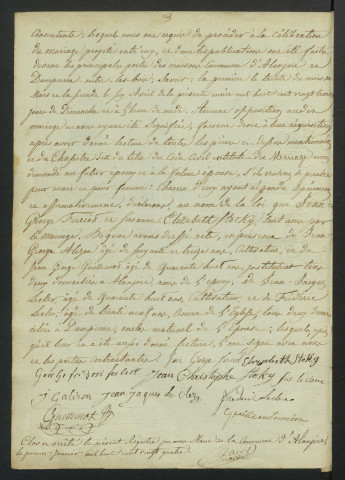 3
Consentante; lesquels nous ont requis de procéder à la Célébration
du mariage projetté entr'eux, et dont les publications ont été faites
devant les principales portes des maisons Communes d'Allanjoie et
Dampierre outre les bois, Savoir: la première le trente du mois de
Mars et la seconde le Six Avril de la présente année mil huit cent vingt trois
jours de Dimanche et à l'heure de midi. Aucune opposition audit
mariage ne nous ayant été Signifiée, faisant droit à leur réquisition,
après avoir donné lecture de toutes les pièces ci-dessus mentionnées,
et du Chapitre Six du titre du Code Civil intitulé du Mariage, avons
demandé au futur époux et à la future épouse s'ils veulent se prendre
pour mari et pour femme: chacun d'eux ayant répondu séparément
et affirmativement, déclarons, au nom de la loi que Jean-
George et Susanne Elizabeth Stoky sont unis par
le mariage. De quoi avons dressé acte, en présence de Jean
George âgé de Soixante et treize ans, Cultivateur, et de
âgé de Quarante huit ans, instituteur tous
deux domiciliés à Allanjoie, de l'époux, de Jean Jacques
âgé de Quarante huit ans, Cultivateur, et de Fréderic
âgé de trente neuf ans, Ancien de l'Eglise, tous deux domi-
ciliés à Dampierre, oncles maternel de l'épouse; lesquels, après
qu'il leur en a été aussi donné lecture, l'ont signé avec nous
et les parties contractantes.
Elisabeth Stoky
Jean Christophe Stoky
Jean Jaques
fréderic
Clos et arrêté le présent Registre par nous Maire de la Commune d'Allanjoie
le premier Janvier mil huit cent vingt quatre.